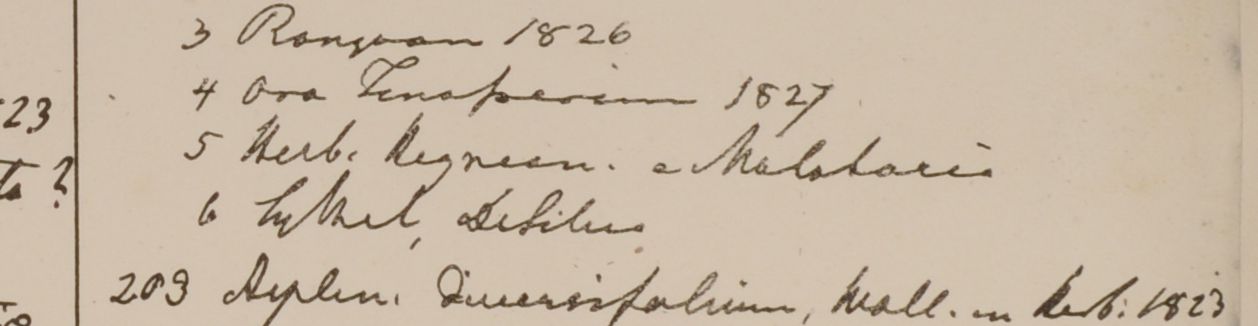 3 Rangoon 1826
4 Ora Tenasserim 1827
23
5 Herb. Heynean. e Malabaria
ta?
6 Sylhet, DeSilva
203 Asplen. diversifolium, Wall. in Herb: 1823